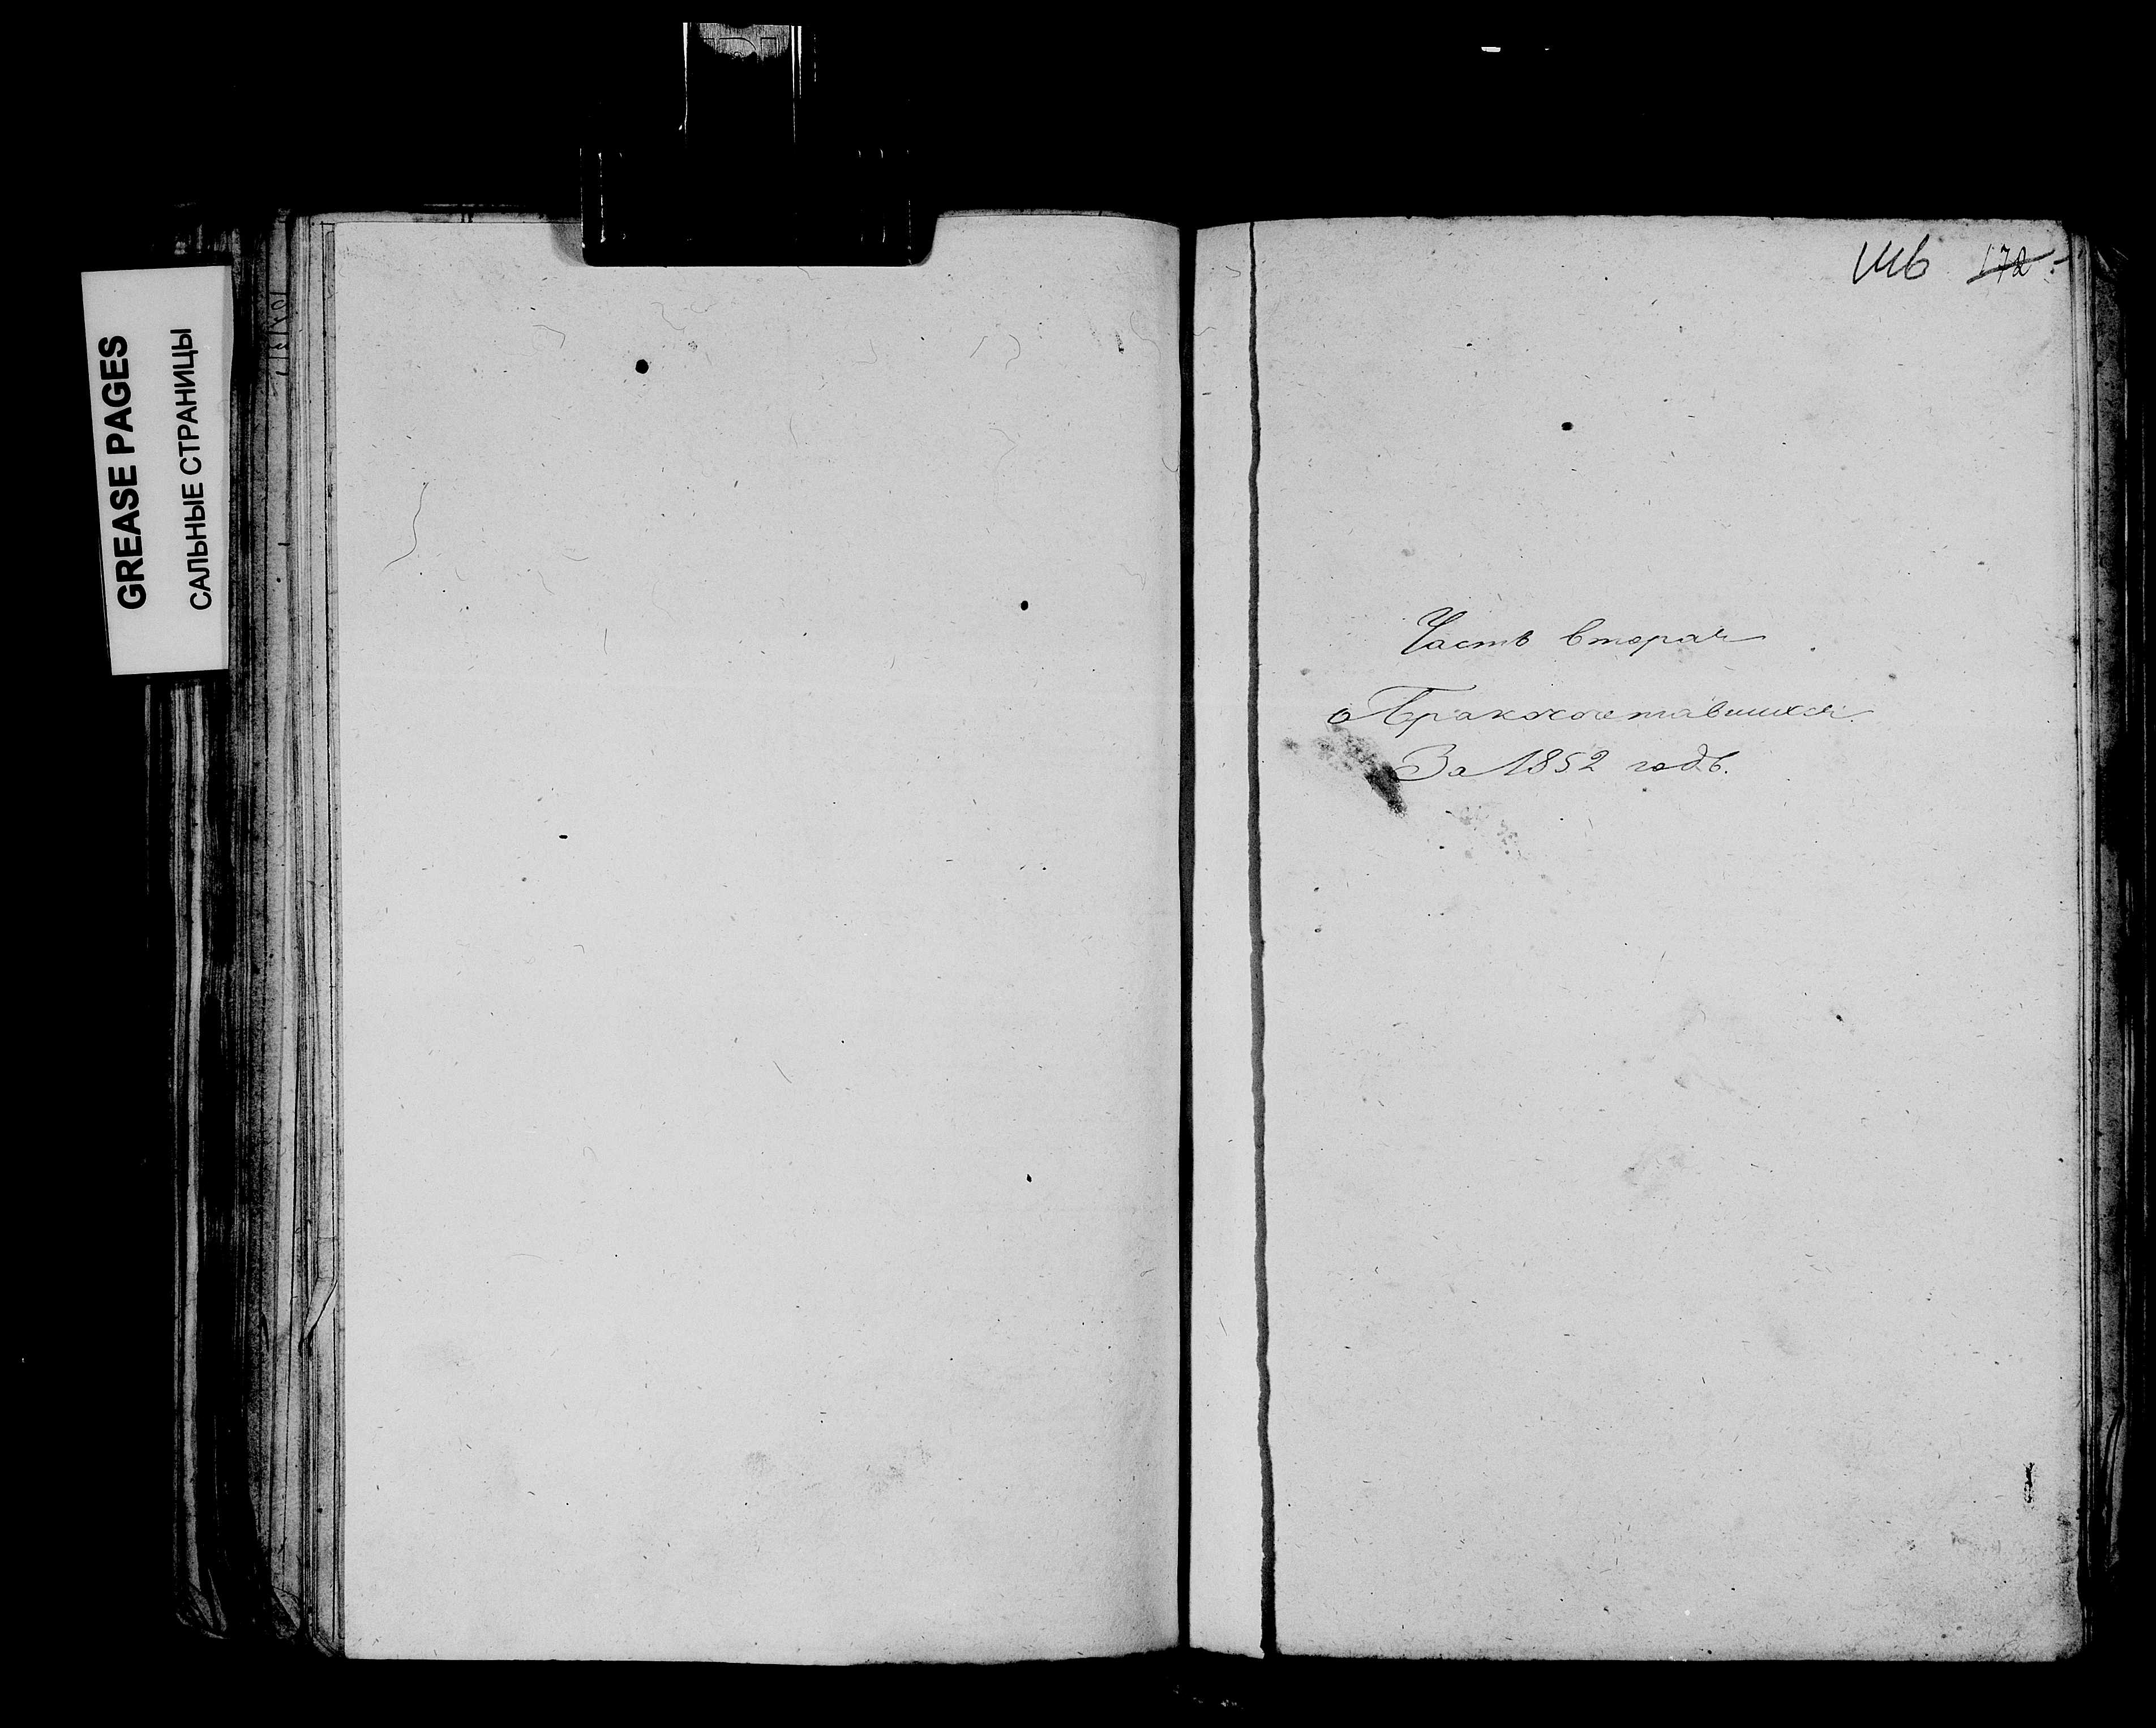 GREASE PAGES
САЛЬНЫЕ СТРАНИЦЫ
172
Часть вторая
о Бракосочетавшихся
За 1852 годъ.